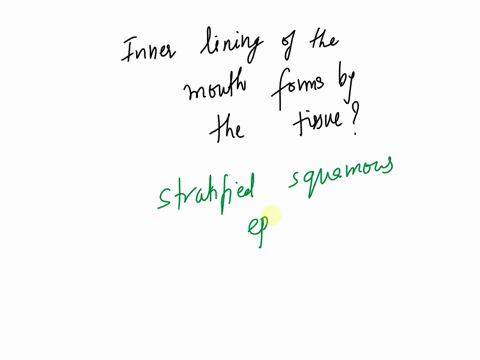 Inner lining of the
mouth forms by
the tissue?
stratified squamous
ep